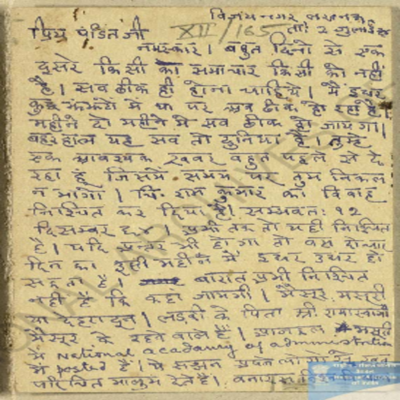 विजयनगर, लखनऊ
प्रिय पंडित जी XII/165 ता: २ जुलाई
नमस्कार। बहुत दिनों से एक
दूसरे किसी का समाचार किसी को नहीं
है। सब ठीक ही होना चाहिये। मैं इधर
कुछ झंझटों में था पर अब ठीक हो रहा है।
महीने दो महीने में सब ठीक हो जायगा।
बहरहाल यह सब तो दुनिया है। तुम्हें
एक आवश्यक खबर बहुत पहले से दे
रहा हूँ जिसमें समय पर तुम निकल
न भागो। चि. राम कुमार का विवाह
निश्चित कर दिया है। सम्भवत: १२
दिसम्बर अभी तक तो यही निश्चित
है। यदि अन्तर भी होगा तो बस दो चार
दिन का इसी महीने में इधर उधर हो
सकता है। बारात अभी निश्चित
नहीं है कि कहा जायगी। मैसूर, मसूरी
या देहरादून। लड़की के पिता श्री
मैसूर के रहने वाले हैं। आजकल मसूरी
में National academy of administration
में posted हैं। ये सज्जन
परिचित मालूम देते हैं। बनारस